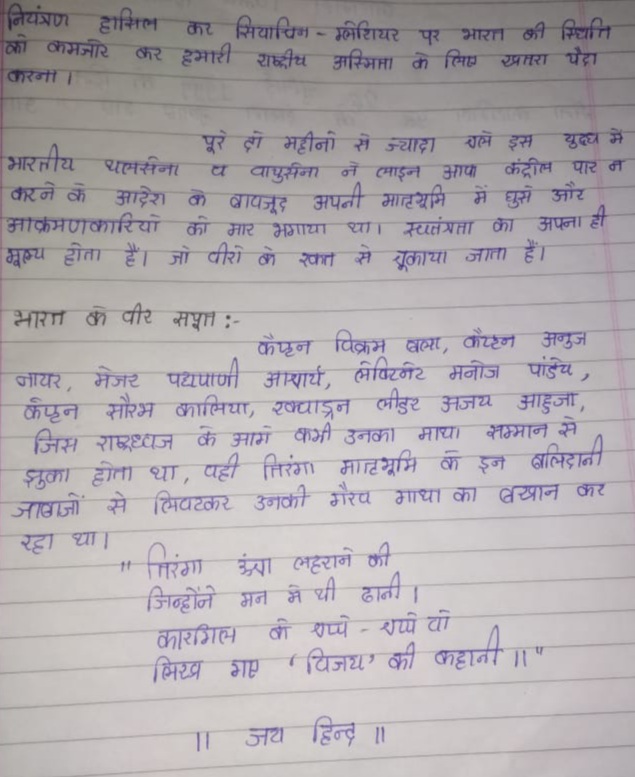 नियंत्रण हासिल कर सियाचिन - ग्लेशियर पर भारत की स्थिति
को कमजोर कर हमारी राष्ट्रीय अस्मिता के लिए खतरा पैदा
करना।
पूरे दो महीनों से ज्यादा चले इस युद्ध में
भारतीय थलसेना व वायुसेना ने लाइन आफ कंट्रोल पार न
करने के आदेश के बावजूद अपनी मातृभूमि में घुसे और
आक्रमणकारियों को मार भगाया था। स्वतंत्रता का अपना ही
मूल्य होता हैं। जो वीरों के रक्त से चूकाया जाता हैं।
भारत के वीर सपूत :-
कैप्टन विक्रम बत्रा, कैप्टन अनुज
नायर, मेजर पद्मपाणी आचार्य, लेफ्टिनेंट मनोज पांडेय,
कैप्टन सौरभ कालिया, स्क्वाड्रन लीडर अजय आहुजा,
जिस राष्ट्रध्वज के आगे कभी उनका माथा सम्मान से
झुका होता था, वही तिरंगा मातृभूमि के इन बलिदानी
जाबाजों से लिपटकर उनकी गौरव गाथा का बखान कर
रहा था।
" तिरंगा ऊंचा लहराने की
जिन्होंने मन मे थी ठानी।
कारगिल के चप्पे - चप्पे वो
लिख गए ' विजय' की कहानी॥"
॥ जय हिन्द ॥